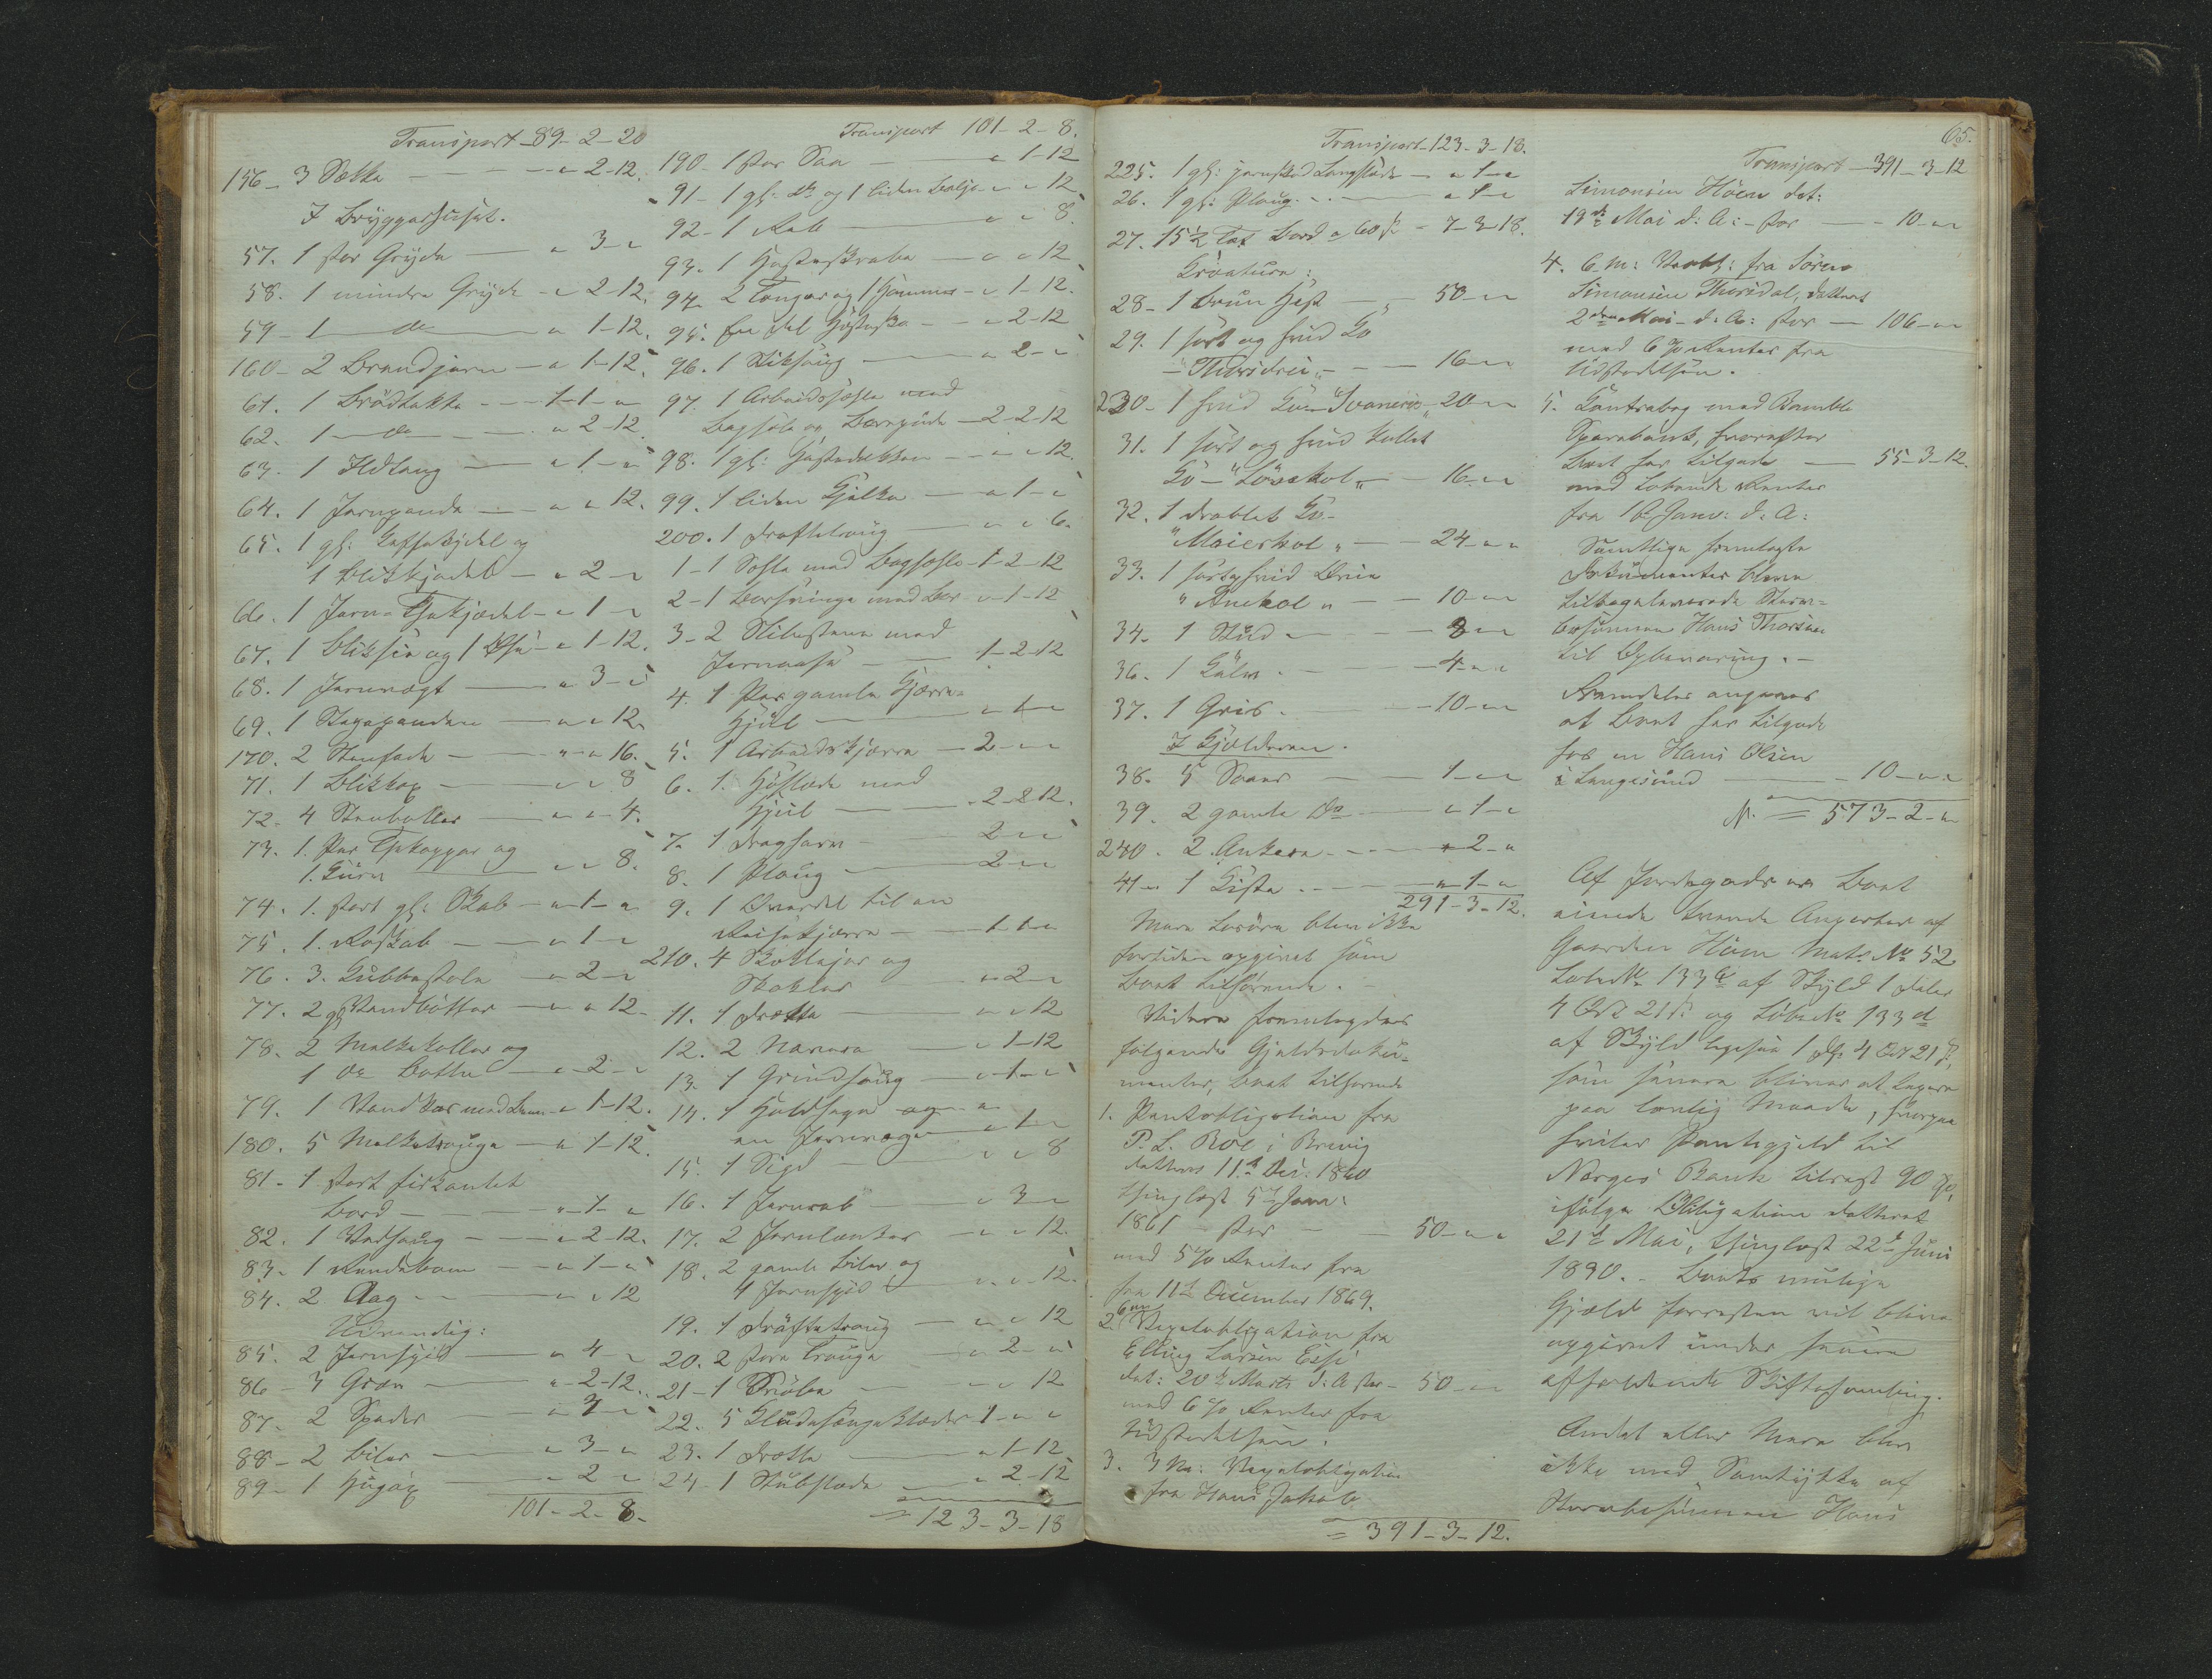 Transport - 89- 2- 20
156- 3 Sække - - - " 2-12.
I Bryggerhuset.
57. 1 stor Gryde - " 3- "
58. 1 mindre Gryde - " 2-12.
59- 1 do - " 1-12.
160- 2 Brandjern - " 1-12.
61. 1 Brödtakke - - 1-1- "
62. 1 do - " 2-12.
63. 1 Ildtang - " 1- "
64. 1 Jernpande - " " 12.
65. 1 gl: Kaffekjedel og
1 Blikkjedel - " 2- "
66. 1 Jern-Thekjædel - " 1- "
67. 1 Bliksie og 1 Öse - " 1-12.
68. 1 Jernvægt - " 3- "
69. 1 Stegepande - " " 12.
170. 2 Stenfade - " " 16.
71. 1 Blikkop - " " 8
72- 4 Stenboller - " " 4.
73. 1. Par Thekopper og
1. Kurv - " " 8.
74. 1. stort gl: Skab - " 1- "
75. 1. Röskab - " 1- "
76. 3. Kubbestole - " 2- "
77. 2 gl Vandbötter - " " 12-
78. 2 Melkekoller og
1 do Bötte - " 2- "
79. 1 Vandkar med - " 1-12.
180. 5 Melketrouge - " 1-12.
81- 1 stort firkantet
Bord - " 1- "
82. 1 Vedsaug - " 2-12.
83- 1 Rendebom - " 1- "
84. 2 Aag - " " 12
Udvendig:
85. 2 Jernspid - " 4- "
86- 3 Grev - " 2-12.
87- 2 Spader - "
88- 2 Biler - " 3- "
89- 1 Hugöx - " 2- "
101- 2- 8-
Transport 101- 2- 8.
190- 1 stor Saa - " 1-12
91- 1 gl: do og 1 liden Balje " " 12
92- 1 - " " 8.
93. 1 Hesteskrabe - " " 12
94 2 Tænger og 1 Hammer - " 1-12.
95. En Del Hestesko - " 2-12
96. 1 Stiksaug - " 2- "
97. 1 Arbeidssæle med
Bagsele og - 2-2-12
98. 1 gl: Hestedækken - " " 12.
99. 1 liden Kjelke - " 1- "
200. 1 Drøftetroug - " " 6.
1-1 Sæle med Bagsæle - 1-2-12
2-1 Borsvinge med Bor - " 1-12
3-2 Slibestene med
Jern - 1-2-12
4. 1 Par gamle Kjærre-
Hjul - " 1- "
5. 1 Arbeidskjærre - 2- " "
6. 1. Höslæde med
Hjul - 2-2-12.
7. 1 Dragharv - 2 " "
8. 1 Ploug - 2 " "
9. 1 til en
Reisekjærre - 1- "
210. 4 og
Stokker - " 2- "
11. 1 Drætte - " " 12
12. 2 Navere - " 1-12
13. 1 Grindsaug - " 1- "
14. 1 og
en Jern - " 1- "
15. 1 Sigd - " " 8
16. 1 Jern - " 3- "
17. 2 Jernlænker - " " 12.
18. 2 gamle Biler og
4 Jernspid - " " 12.
19. 1 Dröftetroug - " " 12
20. 2 store Trouge - " 2- "
21-1 - " " 12
22. 5 1- " "
23. 1 Drætte - " 1-12
24- 1 Stubslæde - " 2-12
= 123-3-18
Transport - 123-3-18.
225. 1 gl: jernskoed Langslæde - " 1- "
26. 1 gl: Ploug - " 1- "
27. 15½ Bord a 60 ß - 7-3-18.
Kreature:
28- 1 brun Hest - 50- "
29. 1 sort og hvid Ko
- 16- "
230- 1 hvid Ko - 20- "
31. 1 sort og hvid kollet
Ko - - 16- "
32. 1 droblet Ko-
"Maierkol" - 24- "
33. 1 sort hvid Qvie
" - 10- "
34. 1 Stud - 8- "
36. 1 Kalv - 4- "
37. 1 Gris - 10- "
I Kjelderen.
38. 5 Saaer - 1- " "
39. 2 gamle Do - " 1- "
240. 2. Ankere - " 2- "
41- 1 Kiste - " 1- "
291-3-12.
Mere Lösöre blev ikke
fortiden opgivet som
Boet tilhörende. -
Videre fremlagdes
fölgende Gjeldsdoku-
menter, Boet tilhörende
1. Pantobligation fra
P. L. Roe i Brevig
datteret 11te Dec: 1860
thinglæst 5te Janr:
1861 - stor - 50- " "
med 5 % Renter fra
fra 11te December 1869.
2. 6 m: Vexelobligation fra
Elling Larsen
dat: 20de Marts d: A. stor - 50- " "
med 6 % Renter fra
Udstedelsen.
3. 3 M: Vexelobligation
fra Hans Jakob
= 391-3-12.
65.
Transport - 391-3-12
Simonsen Höen dat:
19de Mai d: A: - stor - 10- " "
4. 6 M: fra Sören
Simonsen datteret
2den Mai d: A: stor - 106- "
med 6 % Renter fra
Udstedelsen.
5. Kontrabog med Bamble
Sparebank, hvorefter
Boet har tilgode - 55-3-12.
med löbende Renter
fra 1ste Janr: d: A:
Samtlige fremlagte
Dokumenter bleve
tilbageleverede Stærv-
bosönnen Hans Thorsen
til Opbevaring. -
Fremdeles angaves
at Boet har tilgode
hos en Hans Olsen
i Langesund - 10- " "
= 573-2- "
Af Jordegods er Boet
eiende tvende Anparter af
Gaarden Höen Matr. No 52
LöbeNo 133c af Skyld 1 Daler
4 Ort 21 ß og LöbeNo 133d
af Skyld ligesaa 1 Dlr. 4 Ort 21 ß,
som senere bliver at taxere
paa lovlig Maade, hvorpaa
hviler Pantegjeld til
Norges Bank tilrest 90 Sp,
ifölge Obligation datteret
21de Mai, thinglæst 22de Juni
18 0. - Boets mulige
Gjæld forresten vil blive
opgivet under senere
afholdende Skiftesamling.
Andet eller Mere blev
ikke med Samtykke af
Stervbosönnen Hans